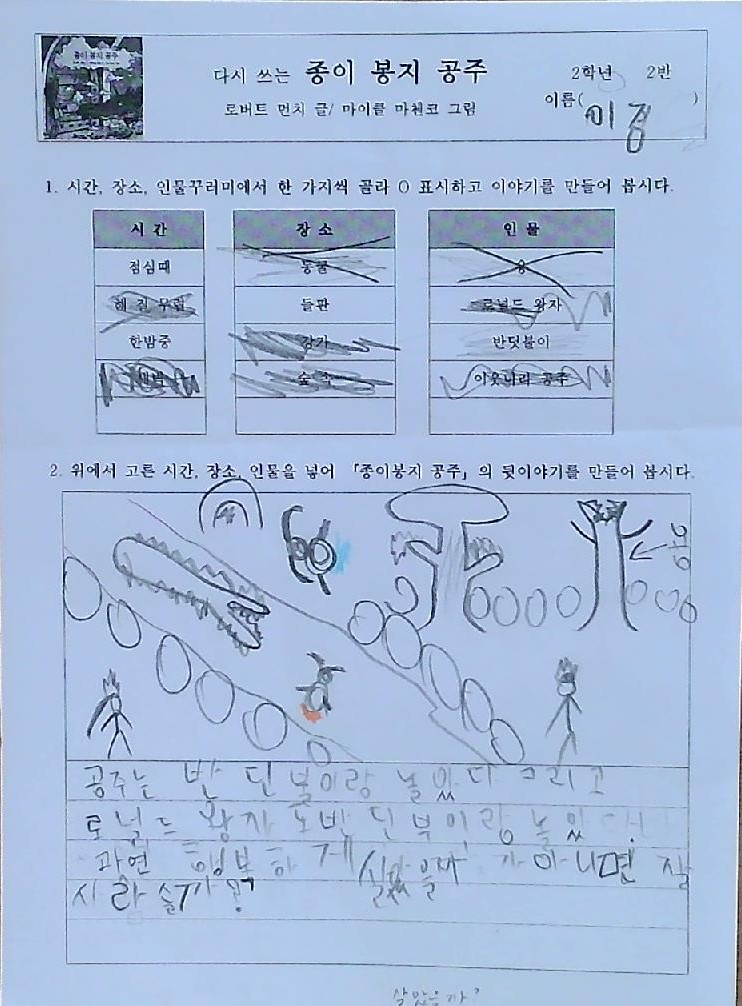 종이 봉지 공주
다시 쓰는 종이 봉지 공주
2학년 2반
로버트 먼치 글/ 마이클 마첸코 그림
이름( 이경 )
1. 시간, 장소, 인물꾸러미에서 한 가지씩 골라 O 표시하고 이야기를 만들어 봅시다.
시 간 장 소 인 물
점심때 동굴 용
해 질 무렵 들판 로널드 왕자
한밤중 강가 반딧불이
새벽 숲 속 이웃나라 공주
2. 위에서 고른 시간, 장소, 인물을 넣어 「종이봉지 공주」의 뒷이야기를 만들어 봅시다.
용
공주는 반딘불이랑 놀았다 그리고
로널드 왕자 노반딘부이랑 놀았
과연 행복하게 가아니면 잘
살았을까?